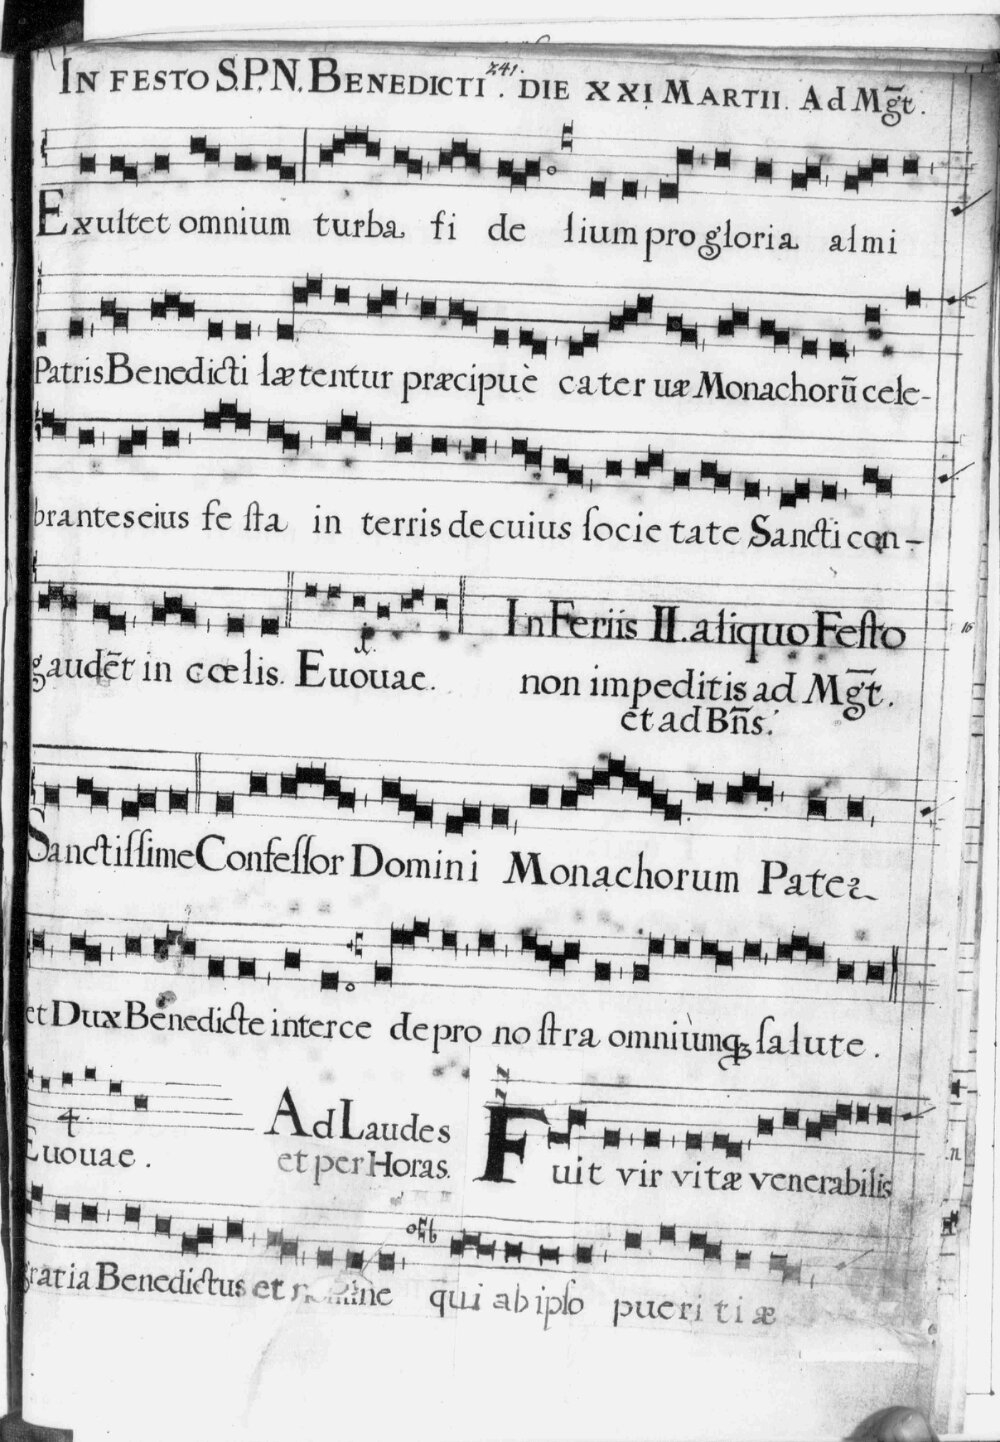 241.
IN FESTO S.P.N. BENEDICTI. DIE XXI MARTII. Ad Mg̅t.
Exultet omnium turba fi de lium pro gloria almi
Patris Benedicti lætentur præcipuè cater uæ Monachorū cele-
brantes eius fe ſta in terris de cuius ſocie tate Sancti con-
gaudēt in cœlis. Euouae. In Feriis II. aliquo Feſto
non impeditis ad Mg̅t.
et ad Bn̅s.
Sanctiſſime Confeſſor Domini Monachorum Pater
et Dux Benedicte interce de pro no ſtra omniùmqꝫ ſalute.
4
Euouae. Ad Laudes
et per Horas.
Fuit vir vitæ venerabilis
gratia Benedictus et nomine qui ab ipſo pueri ti æ